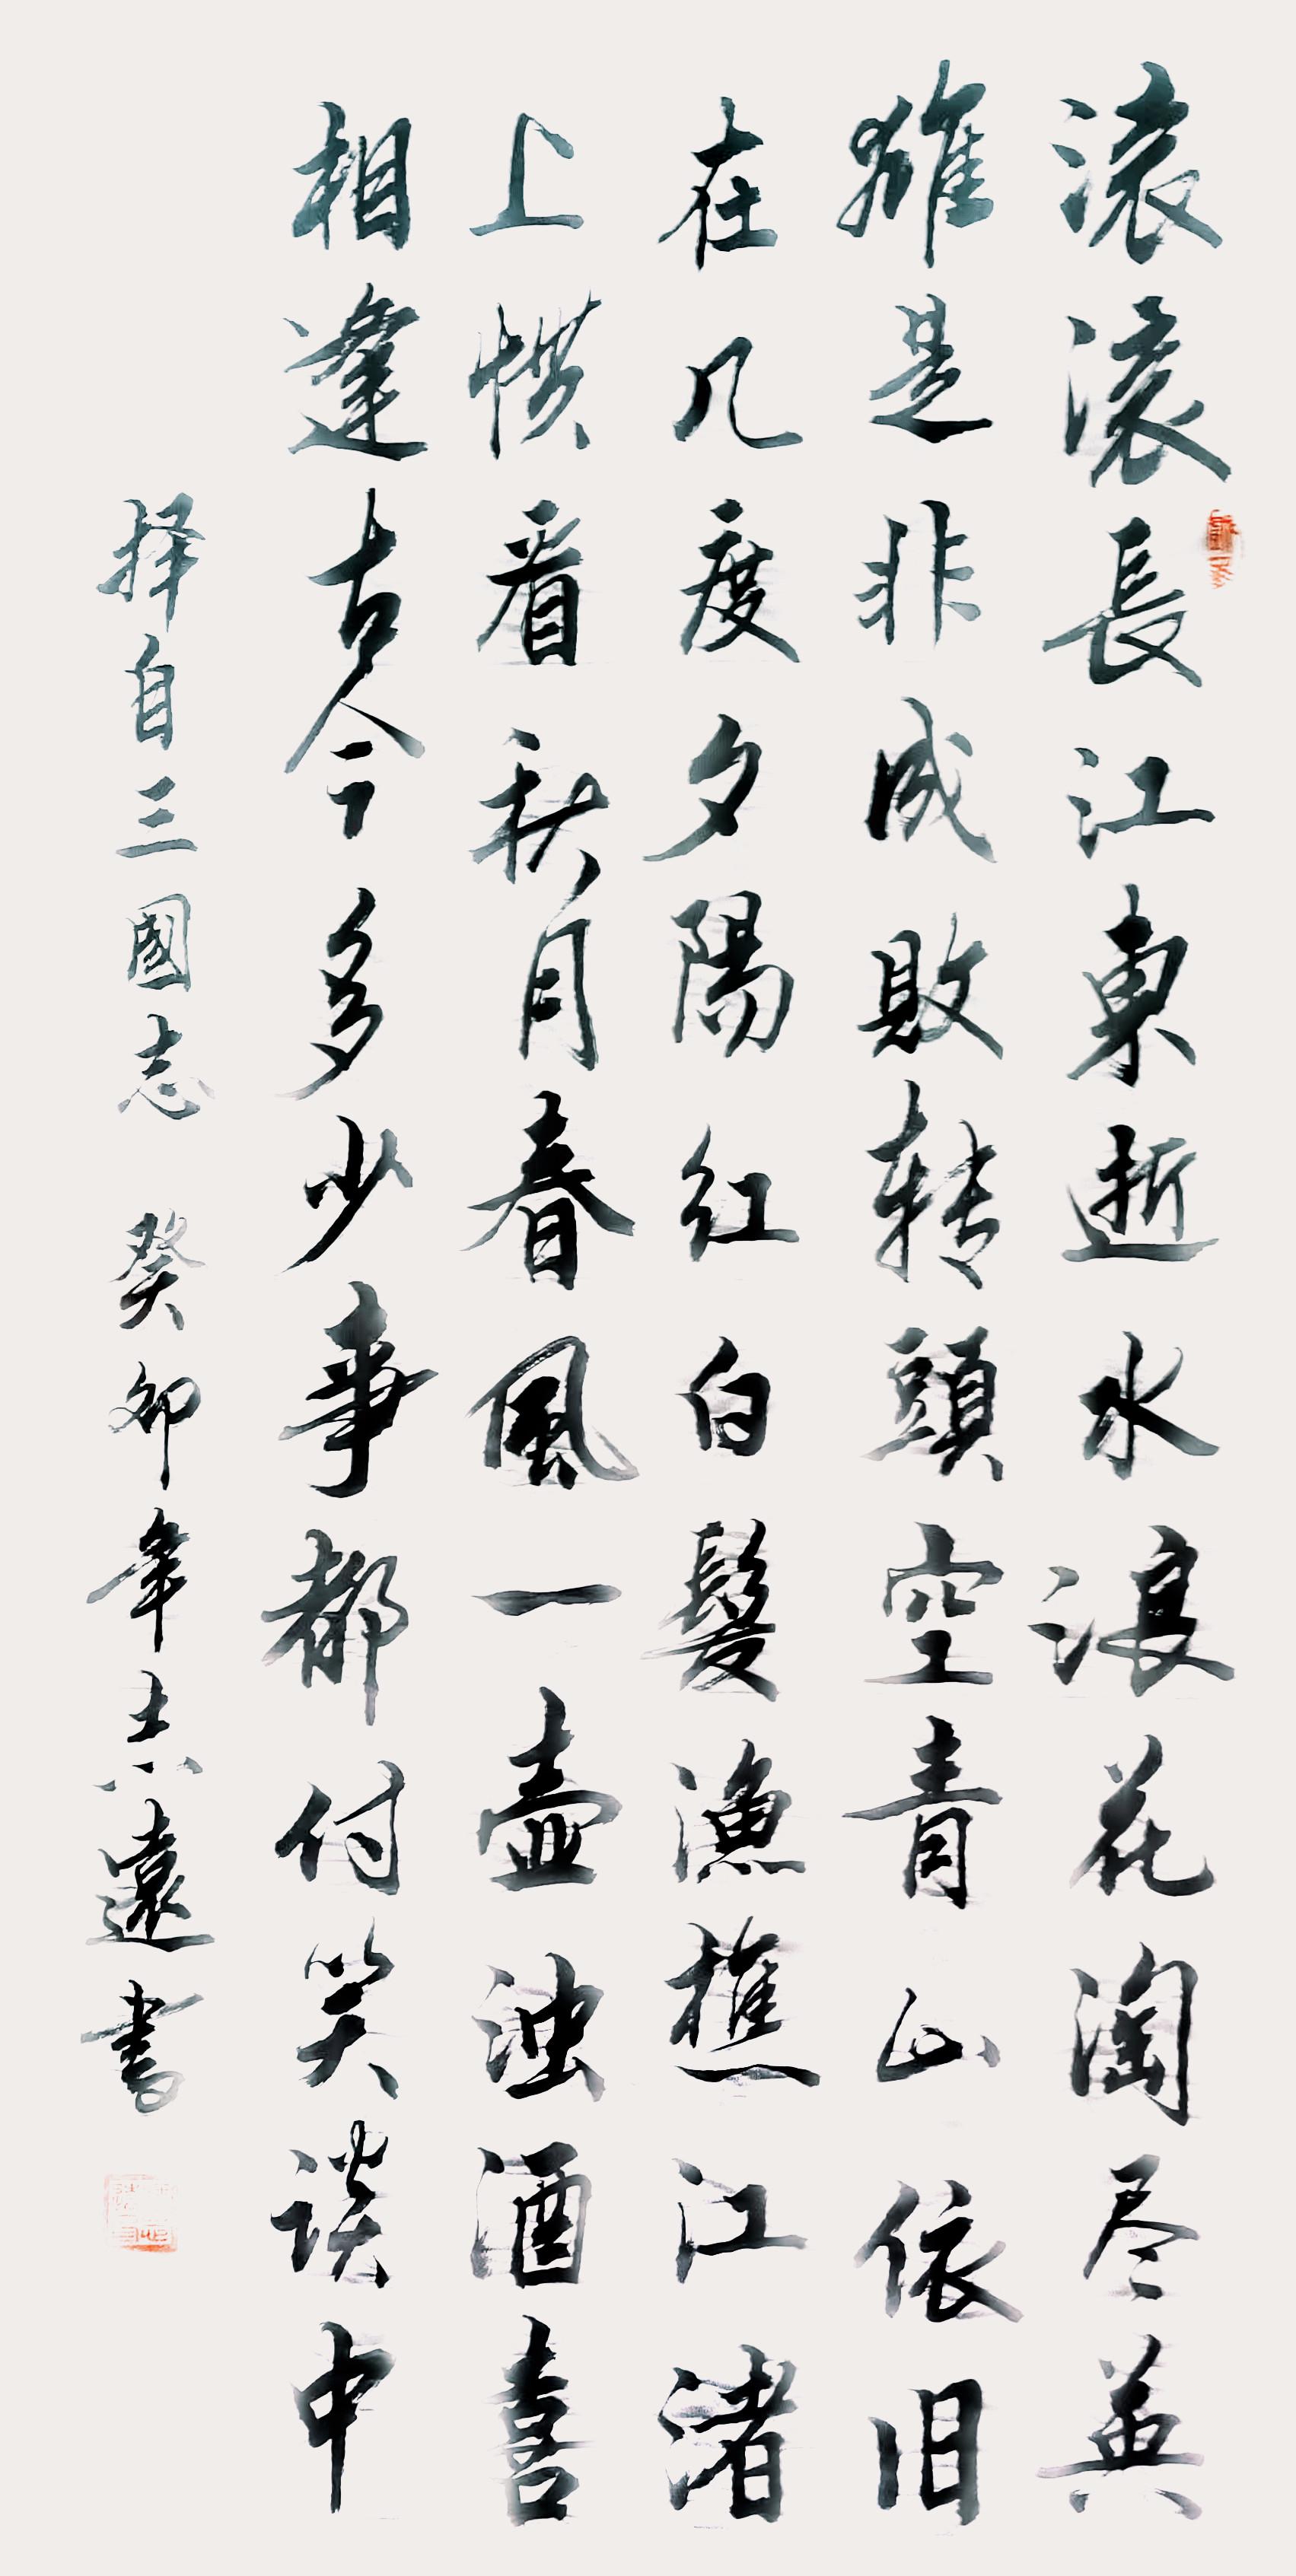 滚滚長江東逝水浪花淘尽英
雄是非成敗转頭空青山依旧
在几度夕陽红白髮漁樵江渚
上惯看秋月春風一壺浊酒喜
相逢古今多少事都付笑談中
择自三國志 癸卯年志遠書